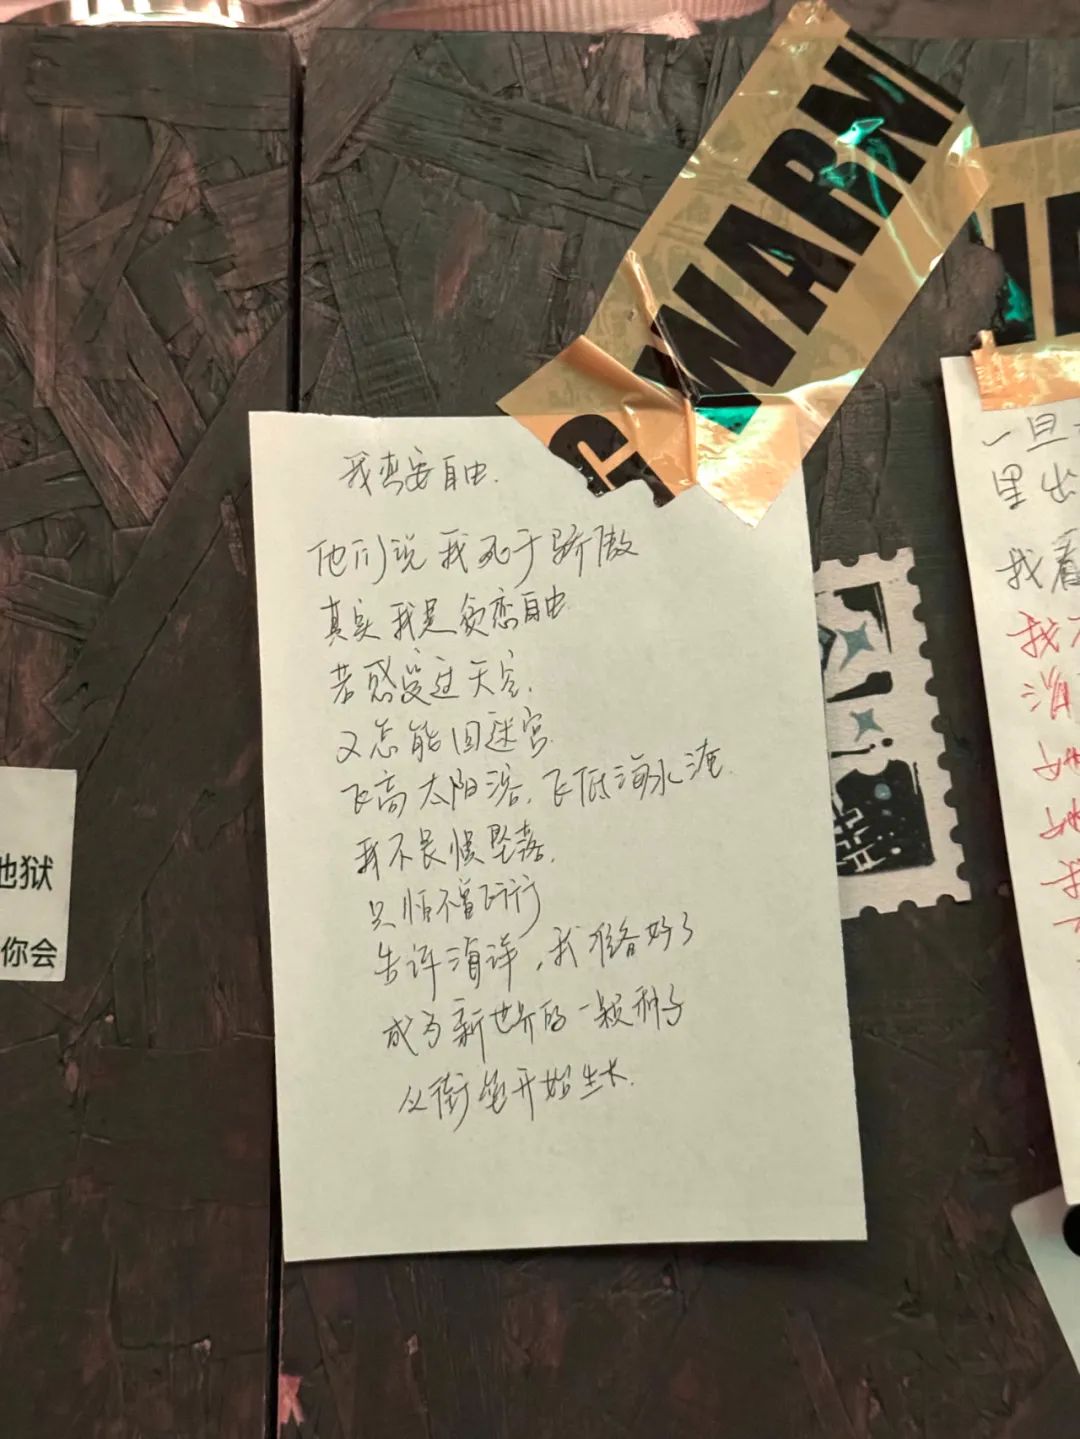 WARN
G
我想要自由.
他们说我死于骄傲
其实我是贪恋自由
若感受过天空,
又怎能回迷宫
飞高太阳溶,飞低海水淹.
我不畏惧坠落,
只怕不曾飞行
告诉海洋,我准备好了
成为新世界的一颗种子
从街角开始生长.
一旦
里出
我看
我
消
她
她
我
地狱
你会